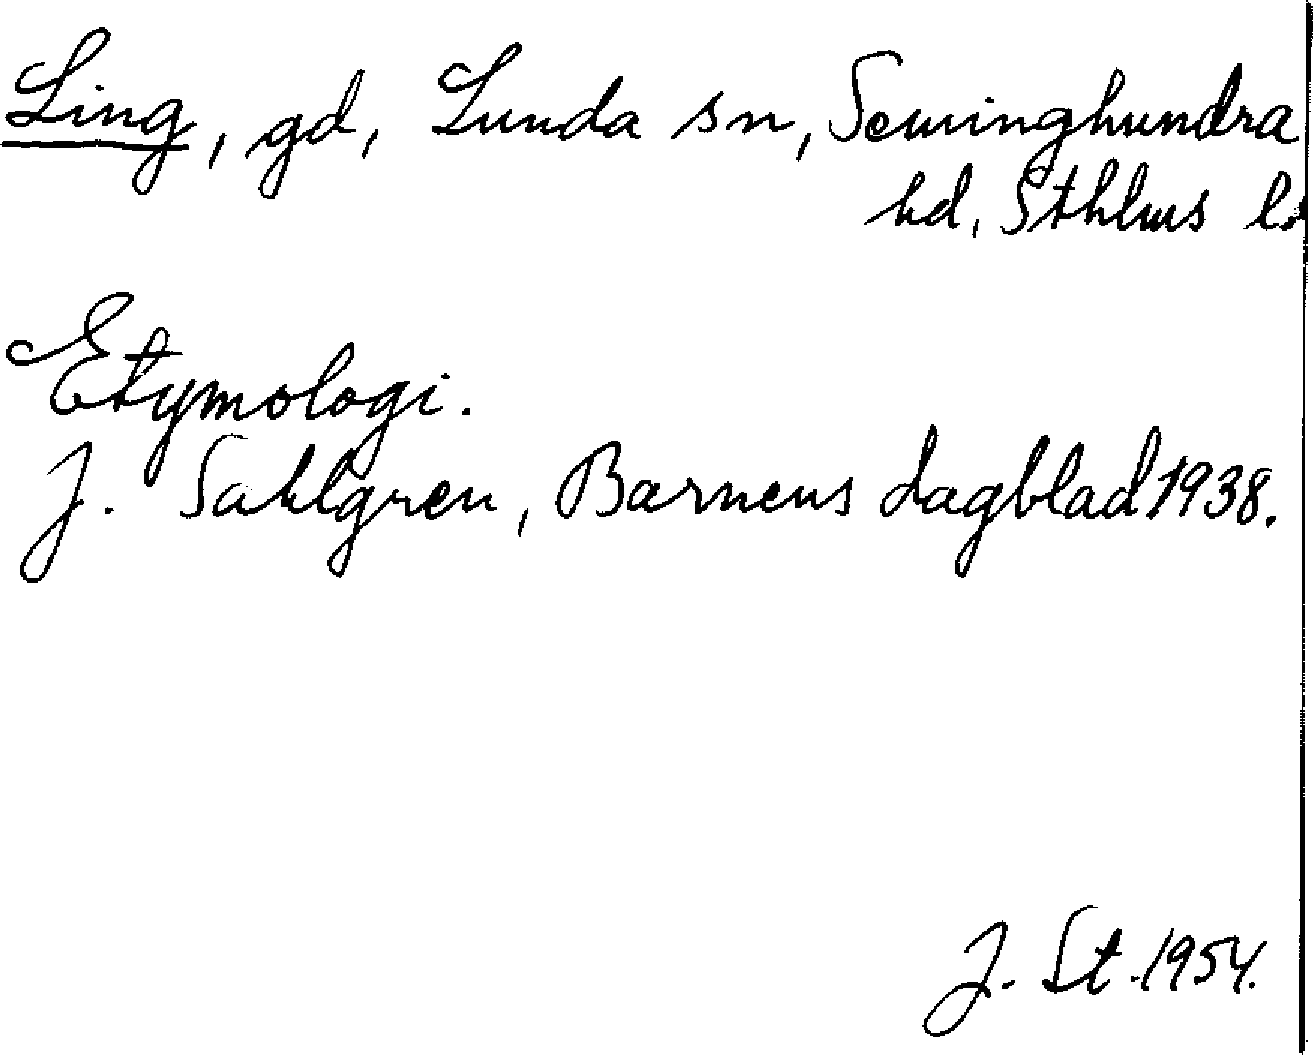 Ling, gd, Lunda sn, Seminghundra
hd, Sthlms l.
Etymologi.
J. Sahlgren, Barnens dagblad 1938.
J. St. 1954.